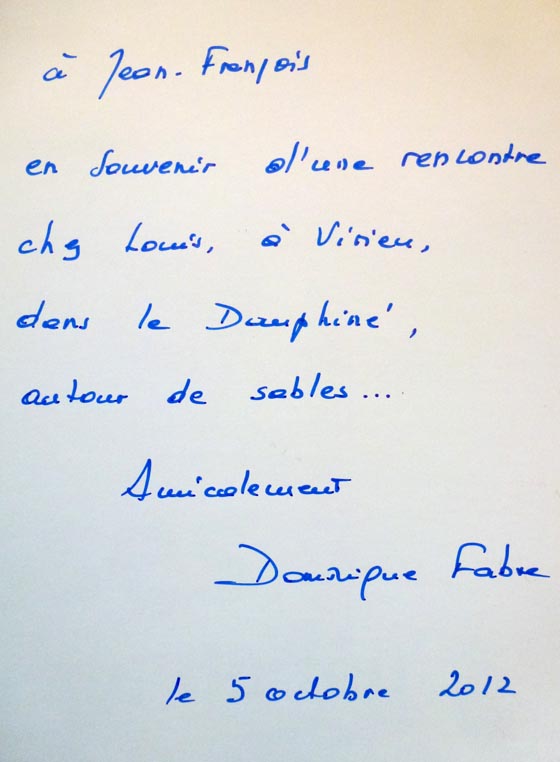 à Jean-François
en souvenir d'une rencontre
chez Louis, à Virieu,
dans le Dauphiné,
autour de sables...
Amicalement
Dominique Fabre
le 5 octobre 2012